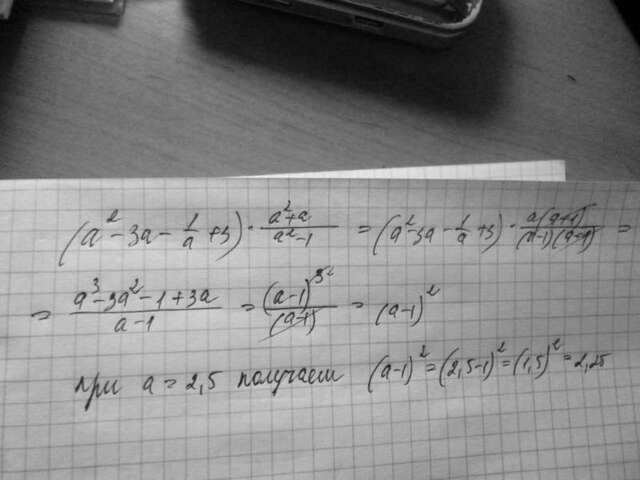 (a² - 3a - 1/a + 3) · (a² + a)/(a² - 1) = (a² - 3a - 1/a + 3) · a(a+1)/((a-1)(a+1)) =
= (a³ - 3a² - 1 + 3a)/(a - 1) = (a-1)³ ²/(a-1) = (a-1)²
при a = 2,5 получаем (a-1)² = (2,5-1)² = (1,5)² = 2,25